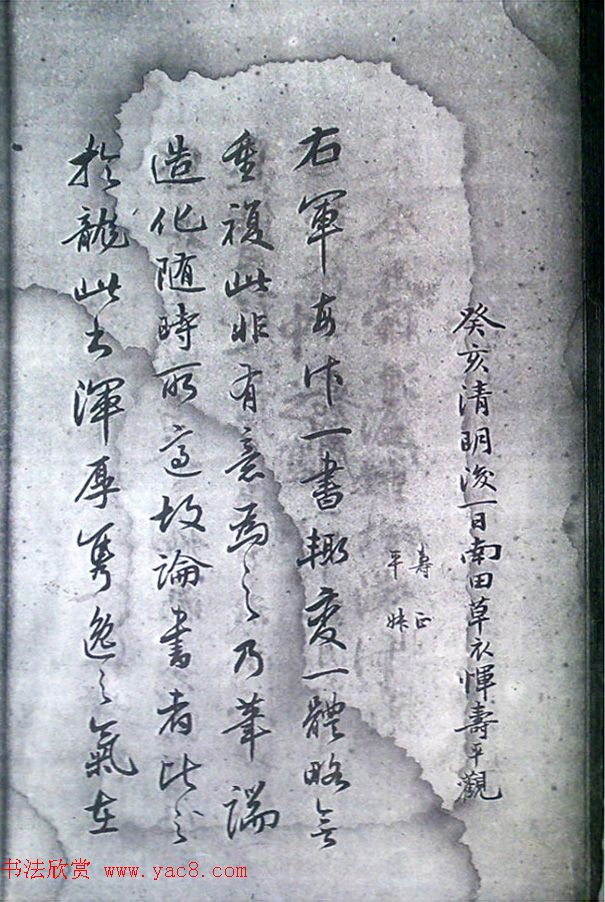 癸亥清明後一日南田草衣惲壽平觀
壽正
平
右軍每作一書輙變一體略無
重複此非有意為之乃筆端
造化随時所適故論書者比之
於龍此書渾厚隽逸之氣在
书法欣赏 www.yac8.com